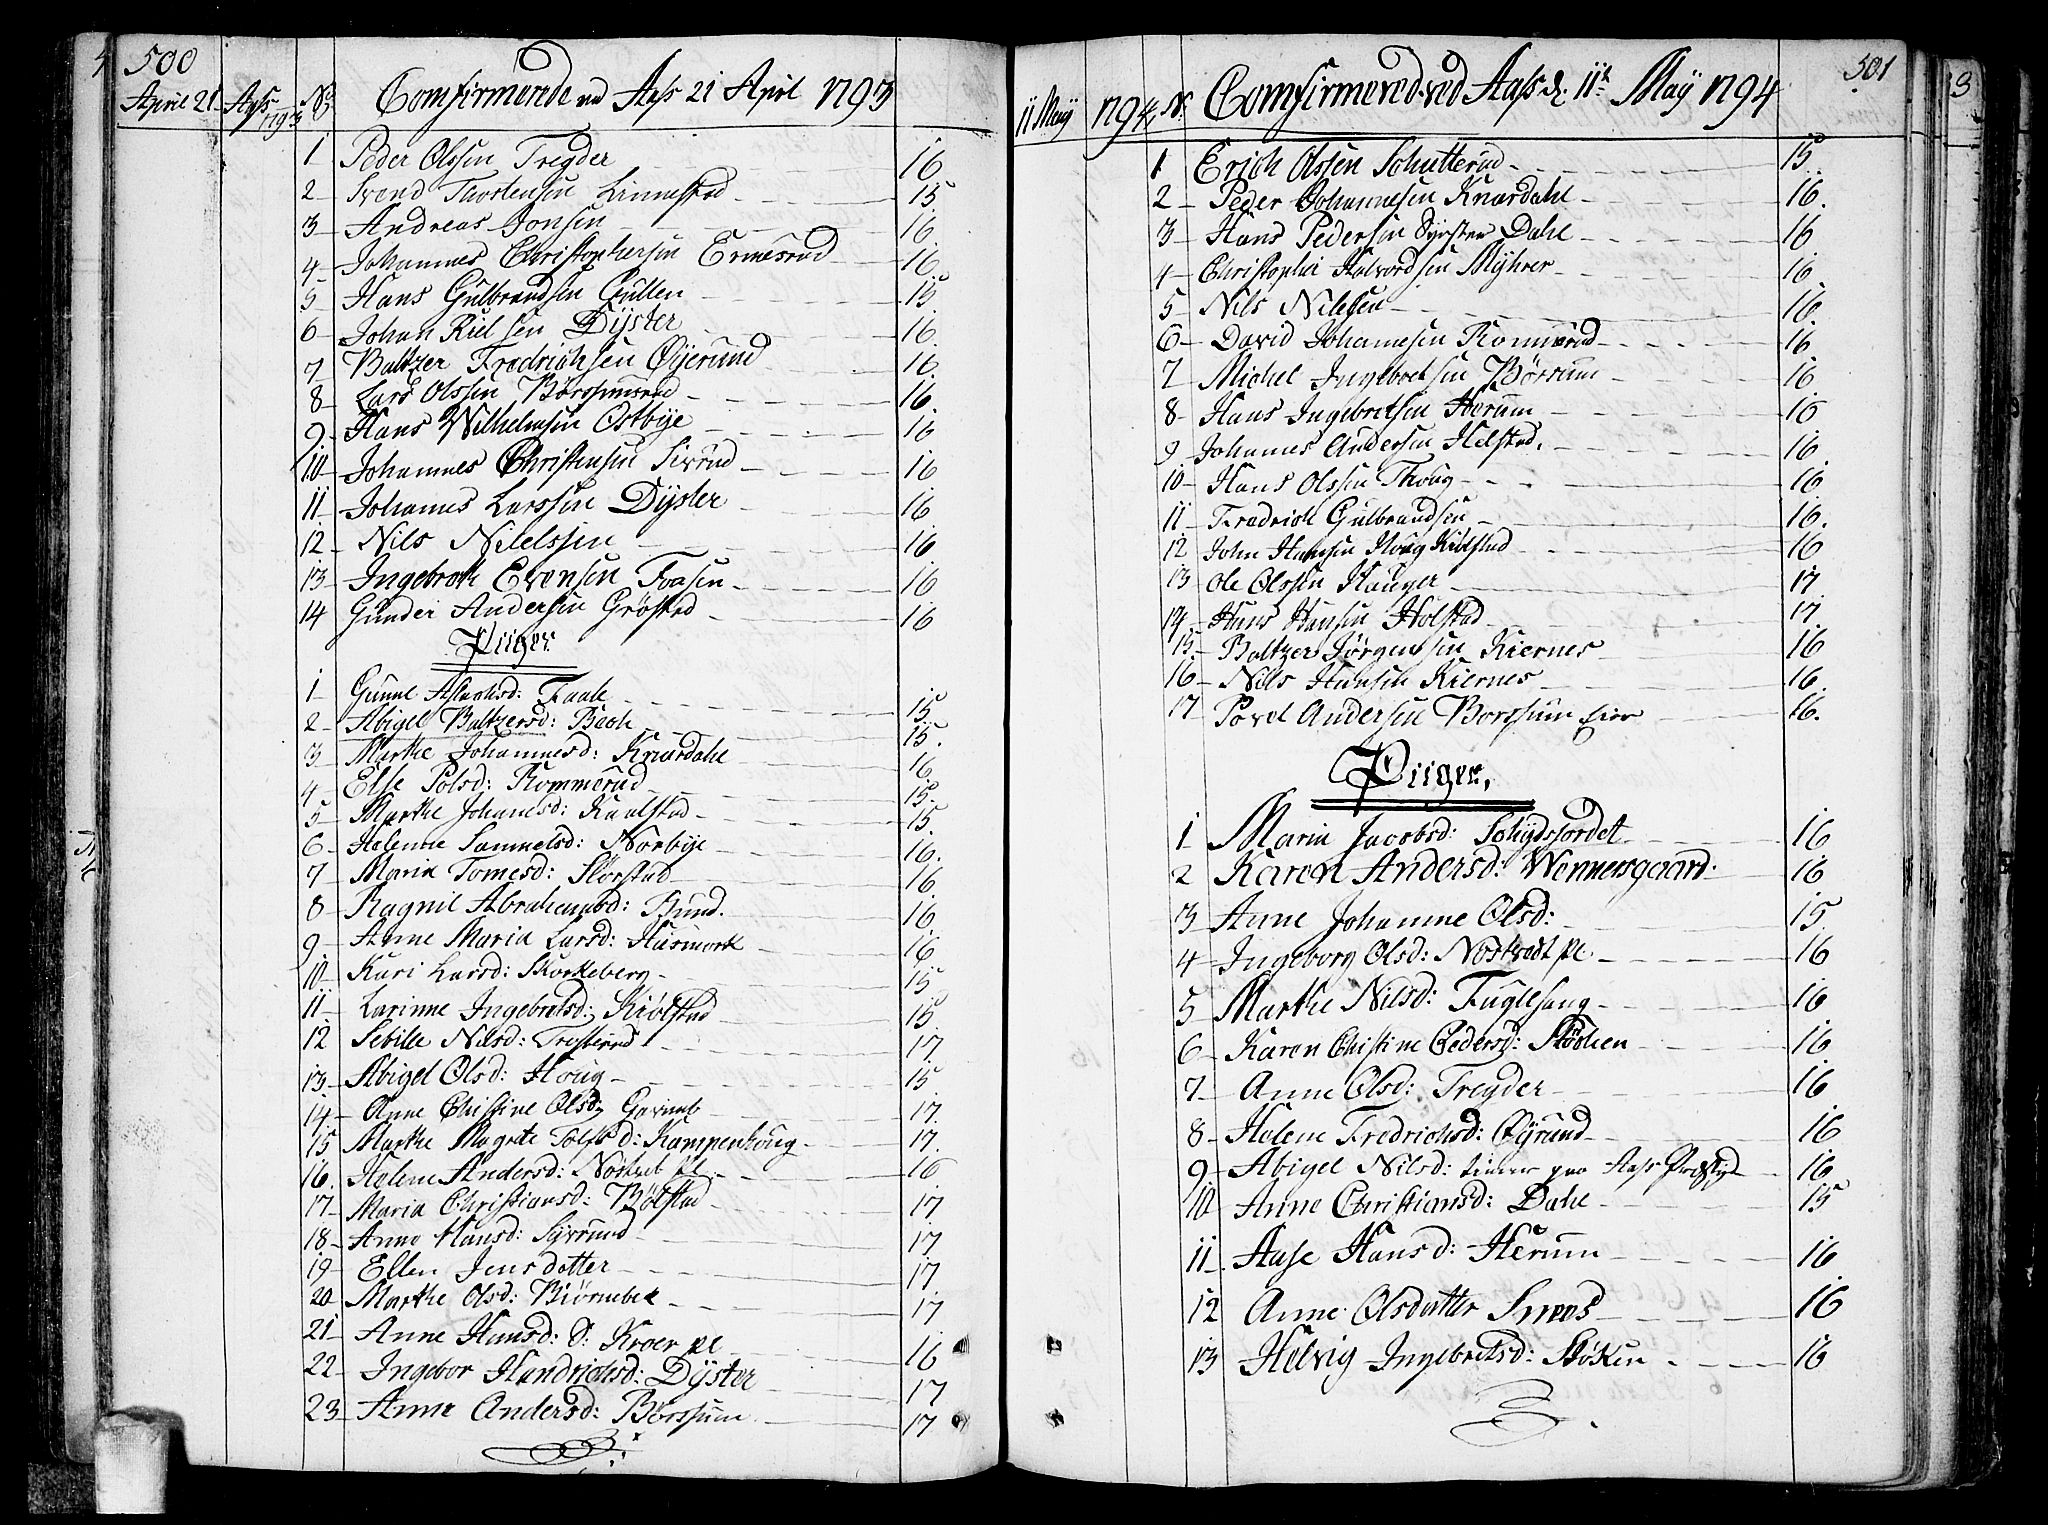 500
April 21 Aass 1793 No Comfirmerede ved Aass 21 April 1793
1 Peder Olssen Tregder 16
2 Svend Thostensen Linnestad 15
3 Andreas Jonsen 16
4 Johannes Christophersen Ermesrud 16
5 Hans Gulbrandsen Gullen 15
6 Johan Rielsen Dÿster 16
7 Baltzer Fredrichsen Øÿerund 16
8 Lars Olssen 16
9 Hans Wilhelmsen Ostbÿe 16
10 Johannes Christensen Sivrud 16
11 Johannes Larssen Dÿster 16
12 Nils Nilelssen 16
13 Ingebreth Evensen Faasen 16
14 Gunder Andersen Grøstad 16
Piiger
1 Gunel Aslachsd: Faale 15
2 Abigel Baltzersd: Bech 15
3 Marthe Johannesd: Knardahl 16
4 Else Polsd: Rommerud 15
5 Marthe Johanesd: Kaalstad 15
6 Helenne Sammelsd: Norbÿe 16
7 Maria Tomesd: Skorstad 16
8 Ragnil Abrahamsd: Rund 16
9 Anne Maria Larsd: Husmork 16
10 Kari Larsd: Skorkeberg 15
11 Larinne Ingebretsd: Kiølstad 15
12 Sebille Nilsd: Trosterud 17
13 Abigel Olsd: Houg 15
14 Anne Christine Olsd: 17
15 Marthe Magrete Tolfsd: Kampenhoug 17
16 Helene Andersd: Nøstvet pl 16
17 Maria Christiansd: Bølstad 17
18 Anne Hansd: Sÿvrund 17
19 Ellen Jensdotter 17
20 Marthe Olsd: Biørnebek 17
21 Anne Hansd: S: Kroer pl 16
22 Ingebor Handrichsd: Dÿster 17
23 Anne Andersd: Børssum 17
501
11 Maÿ 1794 N. Comfirmered ved Aass d. 11te Maÿ 1794
1 Erich Olssen Schutterud 15
2 Peder Johannesen Knardahl 16
3 Hans Pedersen Dyster Dahl 16
4 Christopher Halvordsen Mÿhrer 16
5 Nils Nilesen 16
6 David Johannesen Rommerud 16
7 Michel Ingebretsen Børsum 16
8 Hans Ingebretsen Herum 16
9 Johannes Andersen Helstad 16
10 Hans Olssen Thoug 16
11 Fredrich Gulbrandsen 16
12 John Hansen Houg Kiølstad 16
13 Ole Olssen Hauger 17
14 Hans Hansen Holstad 17
15 Baltzer Jørgensen Kiernes 16
16 Nils Hansen Kiernes 16
17 Povel Andersen Borssum Eier 16
Piiger
1 Maria Jacobsd: Schydsfordet 16
2 Karen Andersd: Wennersgaard 16
3 Anne Johanne Olsd: 15
4 Ingeborg Olsd: Nøstvedt pl 16
5 Marthe Nilsd: Fuglesang 16
6 Karen Christine Pedersd: Støchen 16
7 Anne Olsd: Tregder 16
8 Helene Fredrichsd: Øÿrund 16
9 Abigel Nilsd: tiener paa Aass 16
10 Anne Christiansd: Dahl 15
11 Aase Hansd: Herum 16
12 Anne Olsdatter Smees 16
13 Helvig Ingebretsd: Støken 16